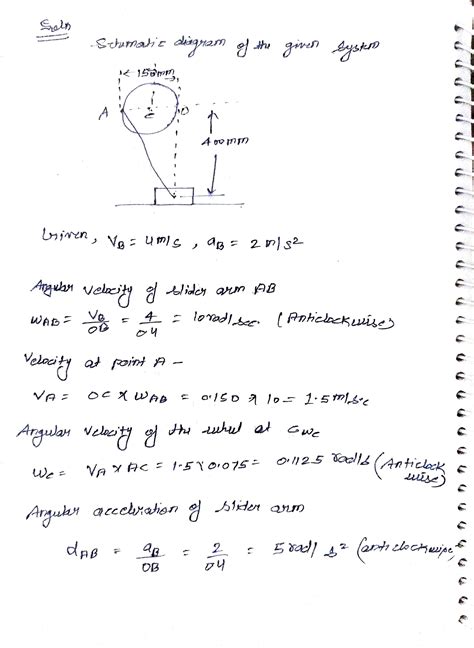 Soln
Schematic diagram of the given system
150mm
A
C
D
400mm
Given, VB = 4m/s, aB = 2m/s²
Angular velocity of slider arm AB
WAB = VB/OB = 4/0.4 = 10rad/sec. (Anticlockwise)
Velocity at point A -
VA = OC x WAB = 0.150 x 10 = 1.5m/sec
Angular velocity of the wheel at C wc
Wc = VA x AC = 1.5 x 0.075 = 0.1125 rad/s (Anticlock
wise)
Angular acceleration of slider arm
αAB = aB/OB = 2/04 = 5rad/s² (anticlockwise)